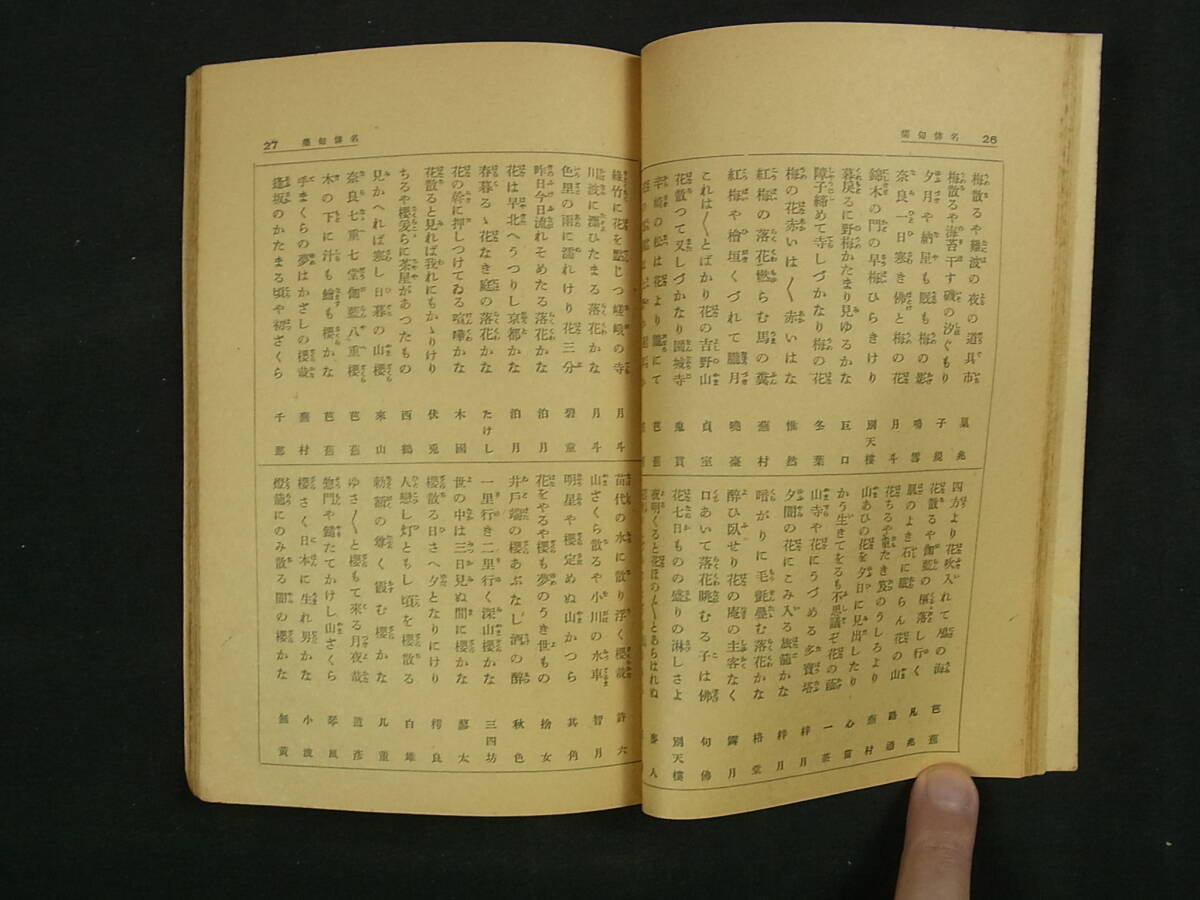 26 名俳句集
梅散るや難波の夜の道具市
梅散るや海苔干す磯の汐ぐもり 子規
夕月や納屋も厩も梅の影 鳴雪
奈良一日寒き佛と梅の花 月斗
錦木の門の早梅ひらきけり 別天樓
暮戻るに野梅かたまり見ゆるかな
障子締めて寺しづかなり梅の花 冬葉
梅の花赤いは〱赤いはな 惟然
紅梅の落花燃らむ馬の糞 蕪村
紅梅や檜垣くづれて朧月 曉臺
これは〱とばかり花の吉野山 貞室
花散つて又しづかなり園城寺 鬼貫
辛崎の松は花より朧にて 芭蕉
四方より花吹入れて鳰の海 芭蕉
花散るや伽藍の樞落し行く 凡兆
肌のよき石に眠らん花の山 路通
花ちるや重たき笈のうしろより 蕪村
山あひの花を夕日に見出したり 心富
かう生きてをるも不思議ぞ花の蔭 一茶
山寺や花にうづめる多寶塔 梓月
夕闇の花にこみ入る旅籠かな 梓月
暗がりに毛氈疊む落花かな 格堂
醉ひ臥せり花の庵の主客なく 露月
口あいて落花眺むる子は佛 句佛
花七日ものの盛りの淋しさよ 別天樓
夜明くると花ほの〲とあらはれぬ
27 名俳句集
篠竹に花を點じつ嵯峨の寺 月斗
川波に漂ひたまる落花かな 月斗
色里の雨に濡れけり花三分 碧童
昨日今日流れそめたる落花かな 泊月
花は早北へうつりし京都かな 泊月
春暮るゝ花なき庭の落花かな たけし
花の幹に押しつけてゐる喧嘩かな 木國
花散ると見れば我れにもかゝりけり 伏兎
ちるや櫻爰らに茶屋があつたもの 西鶴
見かへれば寒し日暮の山櫻 來山
奈良七重七堂伽藍八重櫻 芭蕉
木の下に汁も鱠も櫻かな 芭蕉
手まくらの夢はかざしの櫻哉 蕪村
逢坂のかたまる頃や初ざくら 千那
苗代の水に散り浮く櫻哉 許六
山さくら散るや小川の水車 智月
明星や櫻定めぬ山かつら 其角
花をやるや櫻も夢のうき世もの 捨女
井戸端の櫻あぶなし酒の醉 秋色
一里行き二里行く深山櫻かな 三四坊
世の中は三日見ぬ間に櫻かな 蓼太
櫻散る日さへ夕となりにけり 樗良
人戀し灯ともし頃を櫻散る 白雄
勅額の尊く霞む櫻かな 几董
ゆさ〱と櫻もて來る月夜哉 道彦
惣門や鎚たてかけし山さくら 琴風
櫻さく日本に生れ男かな 小波
燈籠にのみ散る闇の櫻かな 無黄